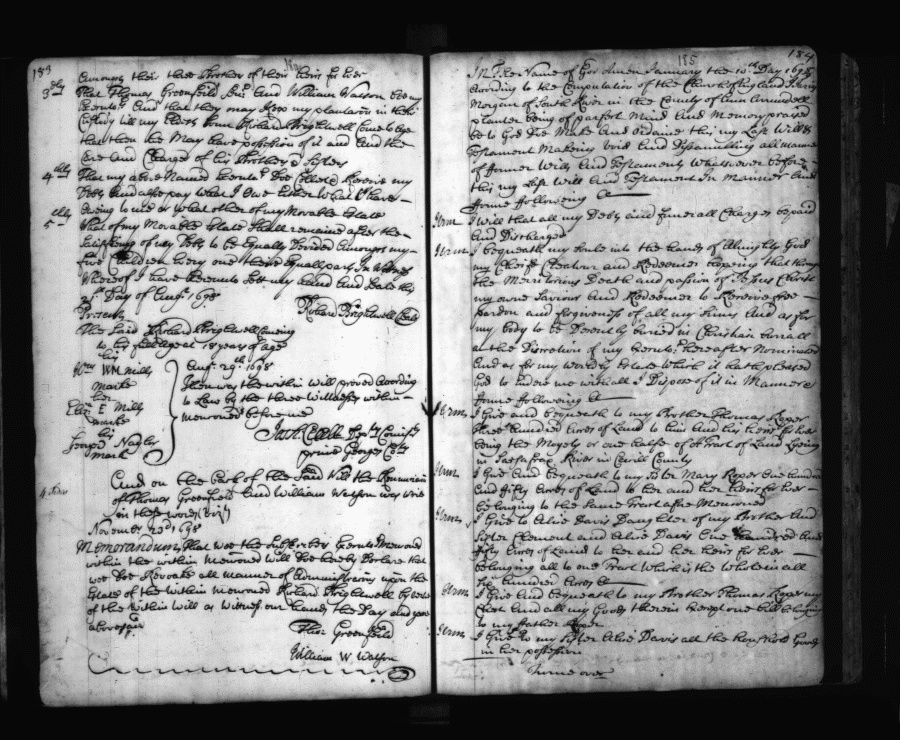 183
Amongst their three Brother or their heirs for ever
3ly That Thomas Greenfield Senr And William Watson bee my
Executors And that they may keep my plantacon in their
Custody till my Eldest Sonn Richard Brightwell Come to Age
that then he May have possession of it and And the
Care And Charge of his Brothers & Sisters
4thly That my above Named Execut Doe Collect & Receive my
Debts And also pay what I Owe Either to what I have
owing to me or what other of my Movable Estate
5thly What of my Movable Estate shall remaine after the
Satisfieing of my Debts to be Equally Devided Amongst my
five Children Every one theire Equall part In Witness
Whereof I have hereunto Sett my hand And Seale this
21st Day of Augst 1698
Richard Brightwell Seale
The Said Richard Brightwell Comeing
to his full age at 18 years of age
his
Wm WM Mills
marke
her
Eliz E Mills
marke
his
Joseph Nagley
mark
Augst 29th 1698
Then was the within Will proved According
to Law by the three Wittnesses within
menconed before me
Josh Cecill Depty Comisry
prince Georges Coty
And on the back of the Said Will the Renunciacon
of Thomas Greenfield And William Watson was writt
in these words (Viz)
November 23d 1698
Memorandum That wee the Subscribers Execut Menconed
within the within menconed Will Doe hereby Declare that
wee Doe Revoake all manner of Administracon upon the
Estate of the within Menconed Richard Brightwell by vertue
of the within Will as Witness our hands the Day and yeare
abovesaid
Thos Greenfield
William W Watson
185
184
In The Name of God Amen January the 10th Day 1697
According to the Computation of the Church of England I
Morgan of South River in the County of Ann Arrundell
planter being of parfect Mind And Memory praised
be to God Doe Make And Ordaine this my Last Will &
Testament Makeing Void And Disannulling all manner
of former Wills And Testaments Whatsoever before
this my Last Will And Testament In Manner And
forme following &c
Item I will that all my Debts and funerall Charges be paid
And Discharged
Item I bequeath my Soule into the hands of Almighty God
my Cheife Creatour and Redeemer hopeing that through
the Merritorious Death and passion of Jesus Christ
my owne Saviour And Redeemer to Receive free
pardon and forgiveness of all my Sinns And as for
my body to be Decently buried in Christian buriall
at the Discretion of my Execut hereafter Nominated
And as for my wordly Estate Which it hath pleased
God to Endue me withall I Dispose of it in Manner &
forme following &c
Item I Give and bequeath to my Brother Thomas Roper
three hundred Acres of Land to him and his heirs for Ever
being the Moyety or one halfe of A Tract of Land Lyeing
in Sassafrax River in Cecill County
Item I Give And bequeath to my Sister Mary Roper One hundred
And fifty Acres of Land to her and her heirs for Ever
belonging to the Same Tract afore Menconed
Item I Give to Alie Davis Daughter of my Brother And
Sister Clement and Alie Davis One hundred And
fifty Acres of Land to her and her heirs for Ever
belonging all to one Tract Which is the Whole in all
Six hundred Acres &c
Item I Give And bequeath to my Brother Thomas Roper my
Chest And all my Goods therein Except one Bill belonging
to my father Roper
Item I Give to my Sister Alie Davis all the houshold Goods
in her possession
Turne over